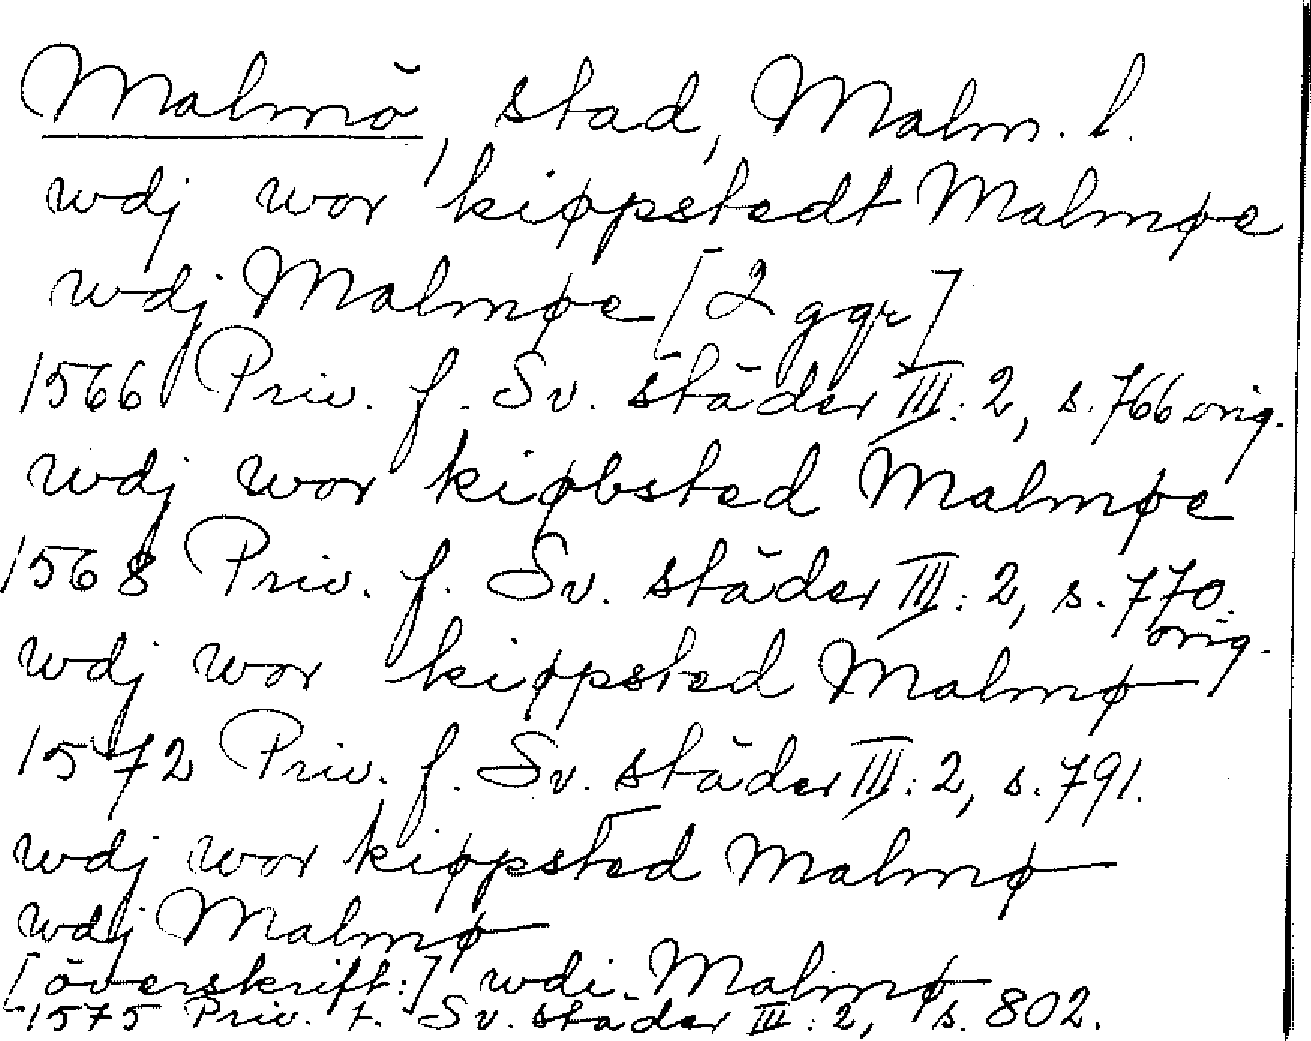 Malmö, stad, Malm. l.
wdj wor kiøppstedt Malmøe
wdj Malmøe [2 ggr]
1566 Priv. f. Sv. städer III: 2, s. 766 orig.
wdj wor kiøbsted Malmøe
1568 Priv. f. Sv. städer III: 2, s. 770. orig.
wdj wor kiøppsted Malmø
1572 Priv. f. Sv. städer III: 2, s. 791.
wdj wor kiøppsted Malmø
wdj Malmø
[överskrift:] wdi Malmø
1575 Priv. f. Sv. städer III: 2, s. 802.